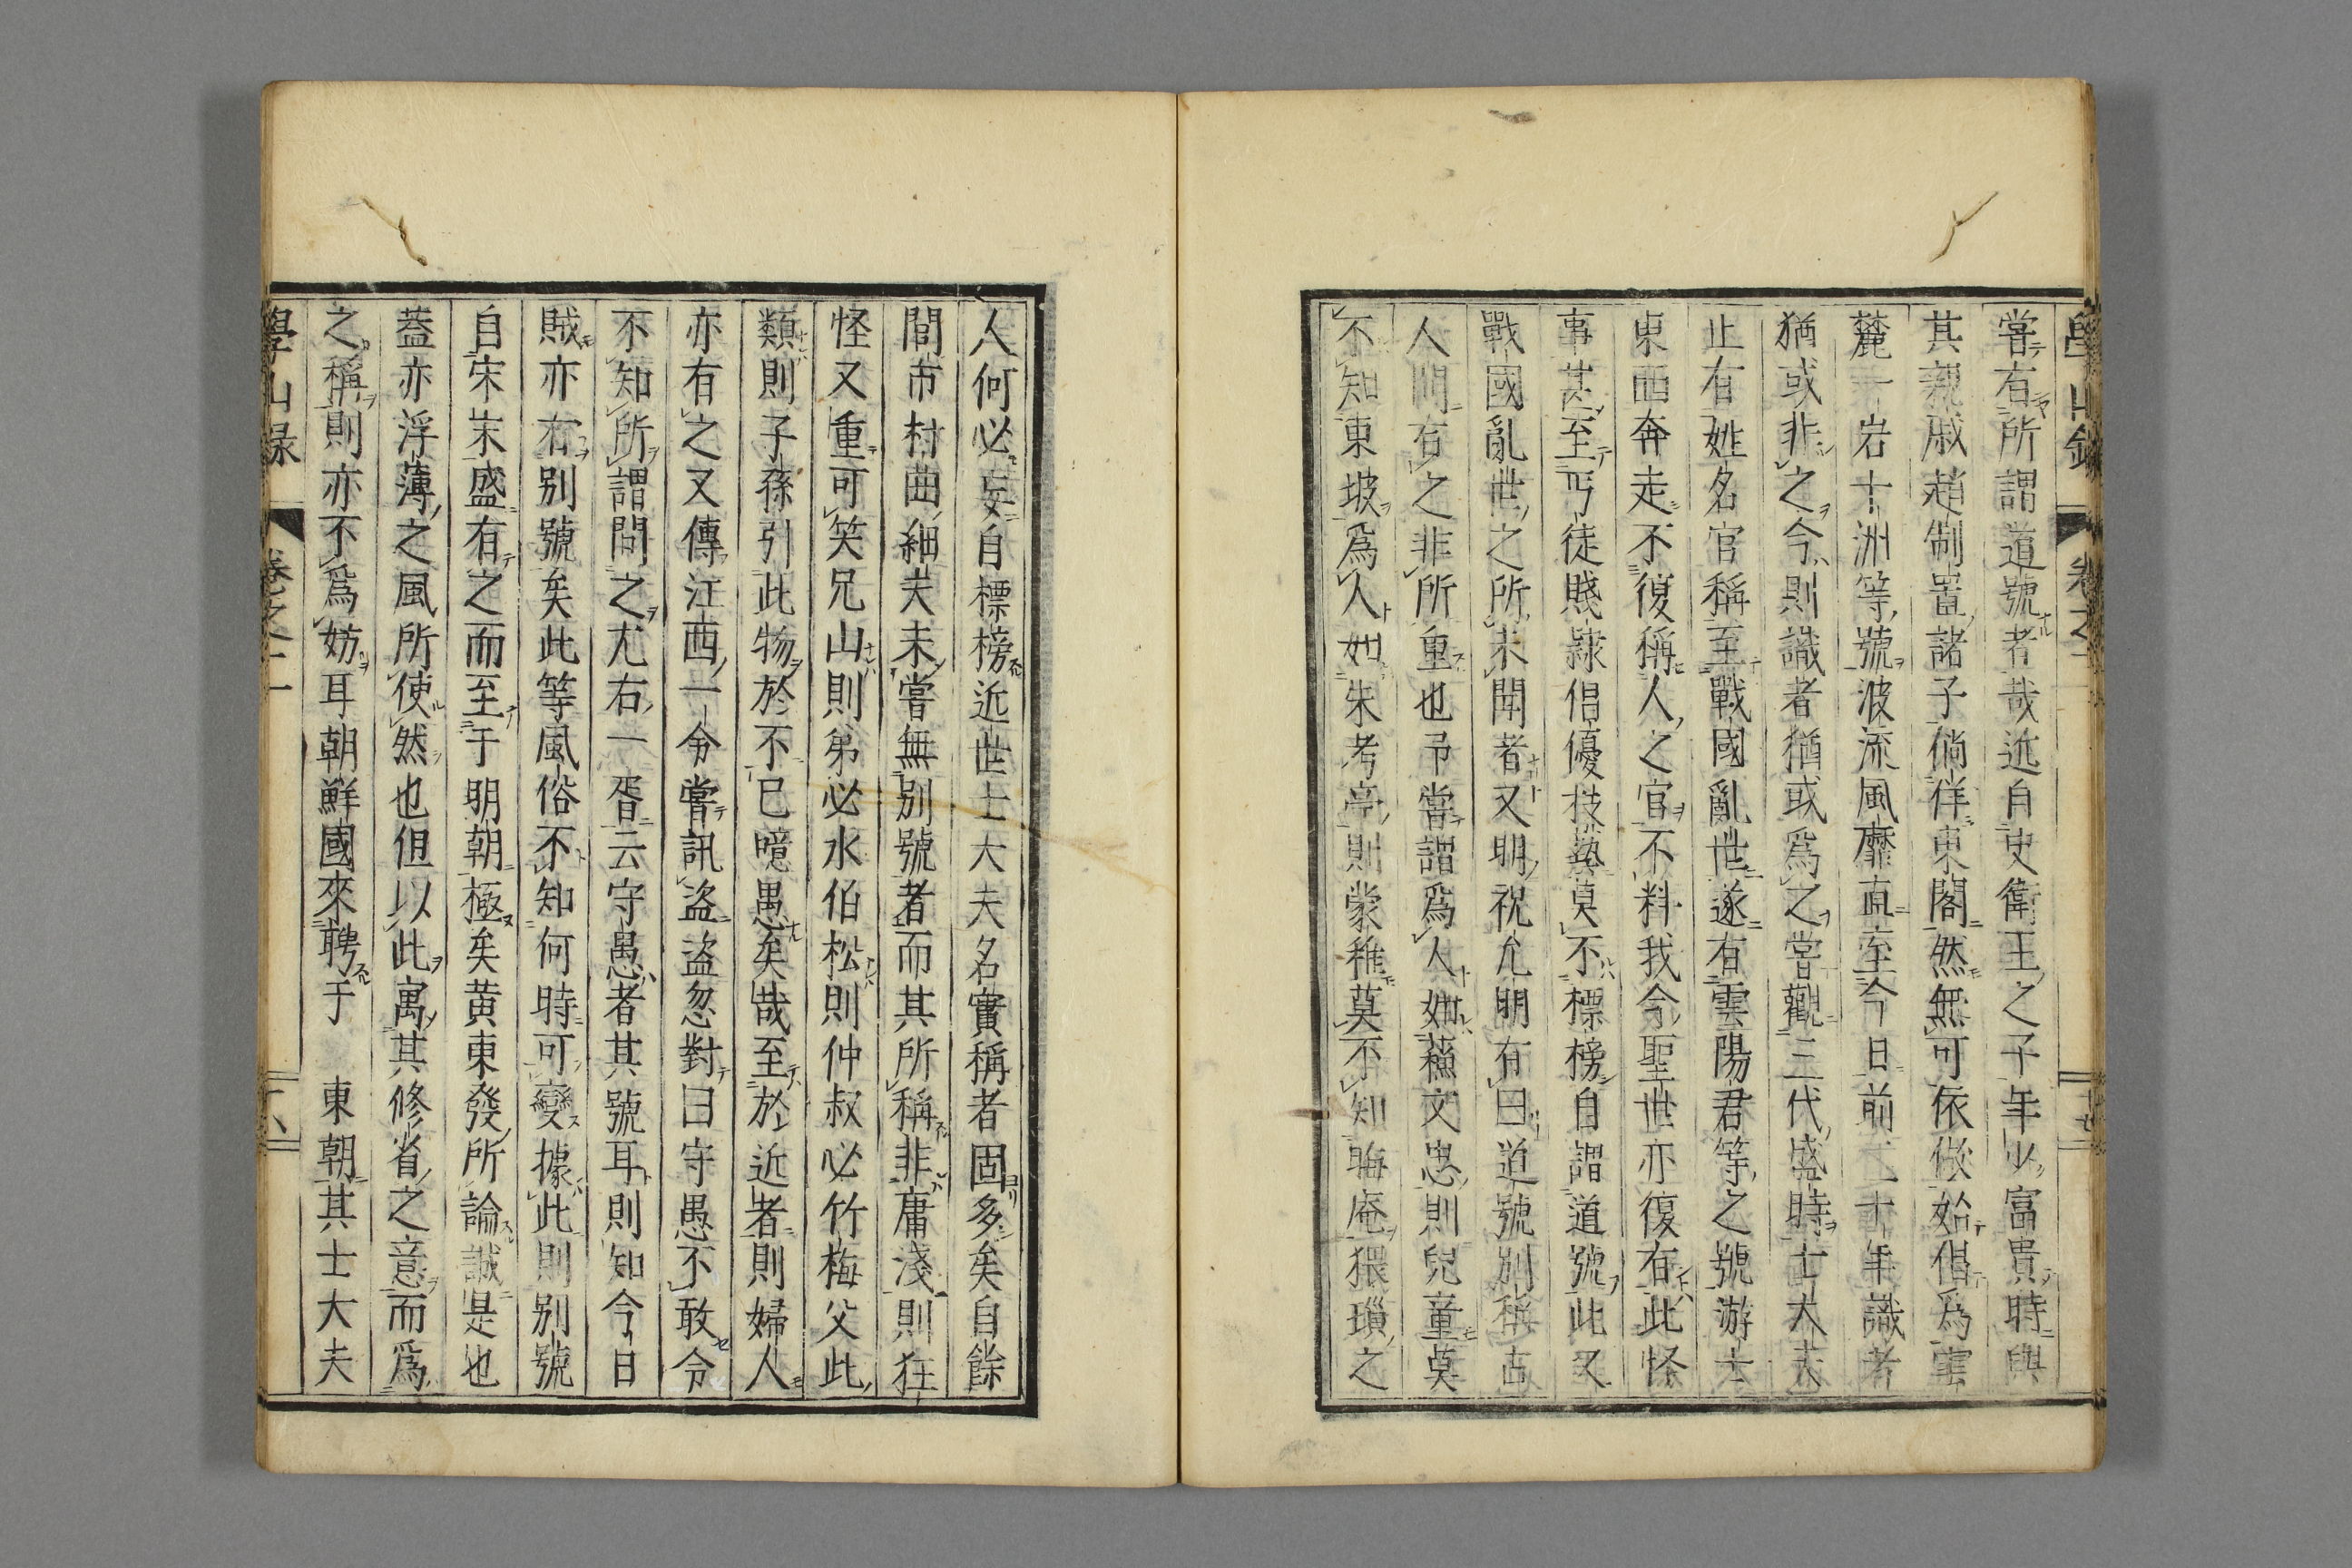 學山錄 卷之二 十七
嘗有所謂道號者哉近自史衛王之子年少富貴時與
其親戚趙制置諸子倘佯東閣然無可依倣始倡爲雲
麓十岩十洲等號波流風靡直至今日前之十年識者
猶或非之今則識者猶或爲之嘗觀三代盛時士大夫
止有姓名官稱至戰國亂世遂有雲陽君等之號游士
東西奔走不復稱人之官不料我今聖世亦復有此怪
事甚至丐徒賤隸倡優技藝莫不標榜自謂道號此又
戰國亂世之所未聞者又明祝允明有曰道號別稱古
人間有之非所重也予嘗謂爲人如蘓文忠則兒童莫
不知東坡爲人如朱考亭則蒙稚莫不知晦庵猥瑣之
人何必妄自標榜近世士大夫名實稱者固多矣自餘
閭市村曲細夫未嘗無別號者而其所稱非庸淺則狂
怪又重可笑兄山則弟必水伯松則仲叔必竹梅父此
類則子孫引此物於不已噫愚矣哉至於近者則婦人
亦有之又傳江西一令嘗訊盜盜忽對曰守愚不敢令
不知所謂問之尤右一胥云守愚者其號耳則知今日
賊亦有別號矣此等風俗不知何時可變據此則別號
自宋末盛有之而至于明朝極矣黄東發所論誠是也
蓋亦浮薄之風所使然也但以此寓其修省之意而爲
之稱則亦不爲妨耳朝鮮國來聘于 東朝其士大夫
學山錄 卷之二 十八